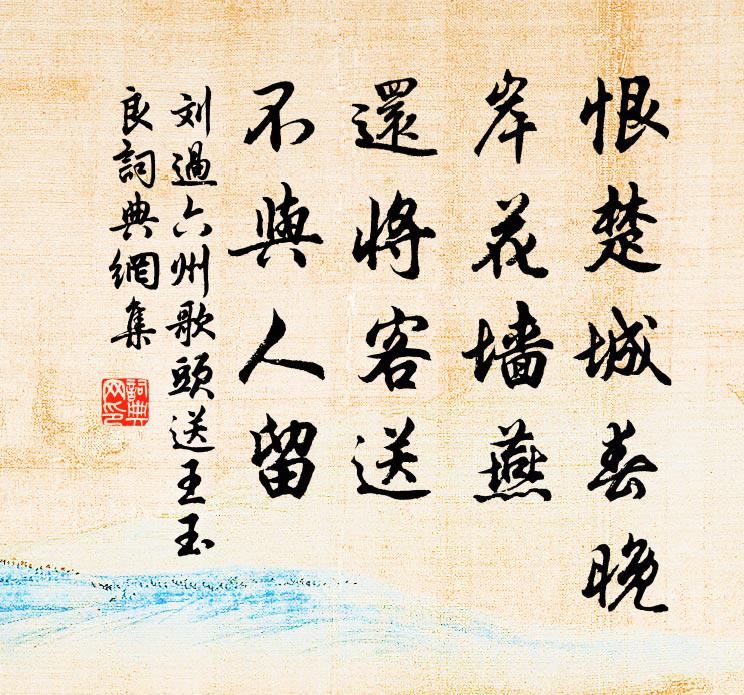 恨楚城春晚
岸花墙燕
還將客送
不與人留
刘過六州歌頭送王玉
良詞典網集
詞典
网印